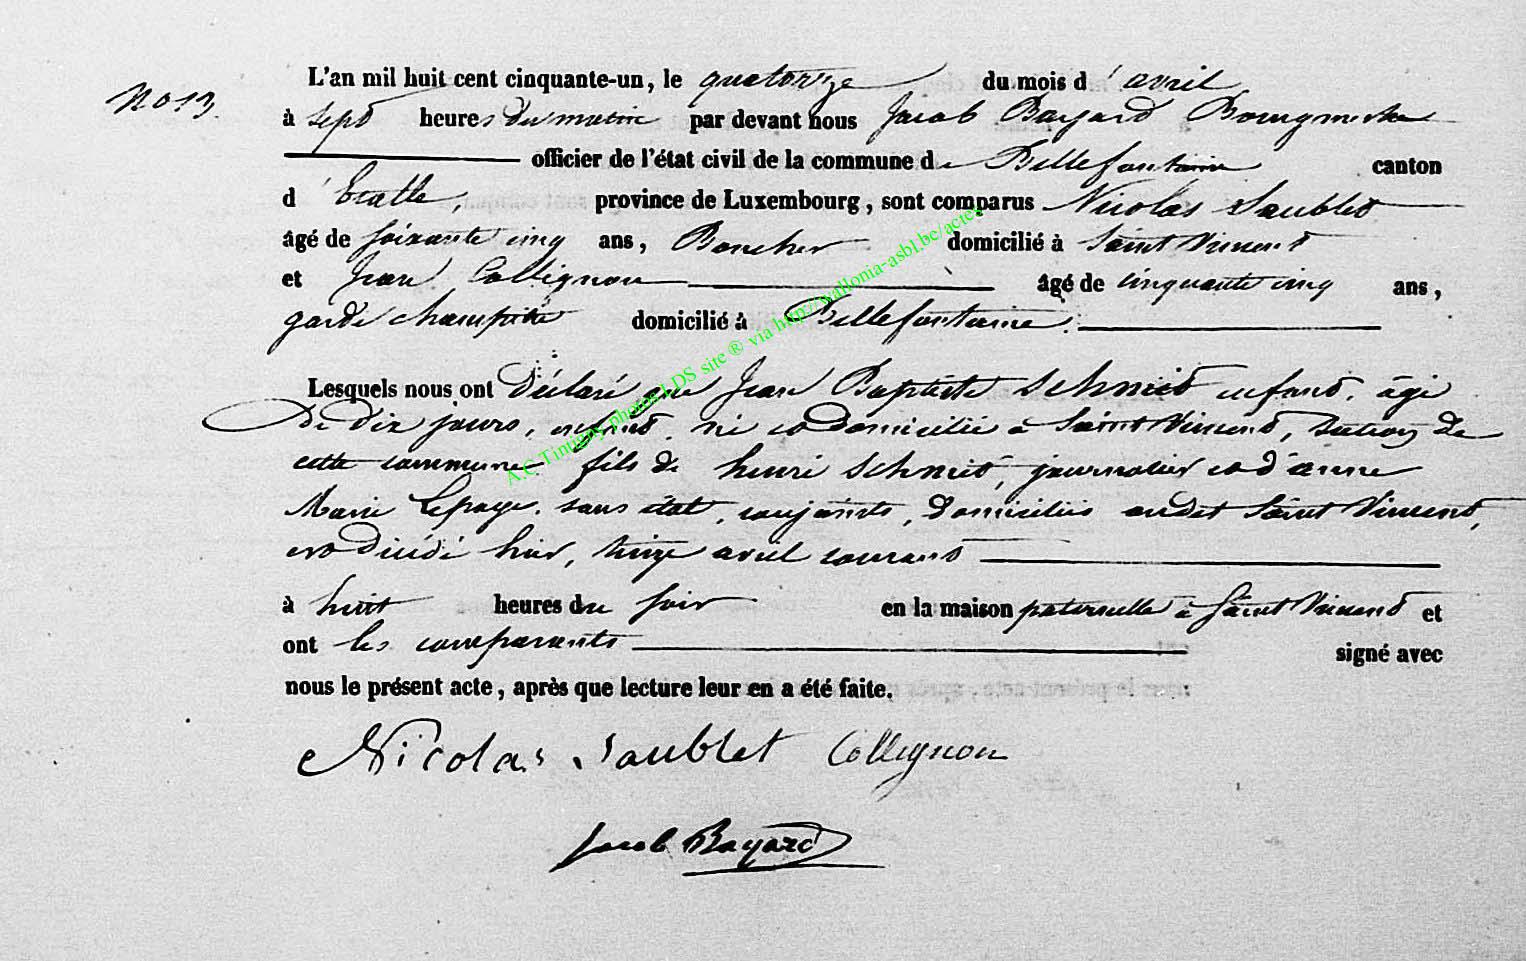 No 13.
L'an mil huit cent cinquante-un, le quatorze du mois d'avril
à sept heures du matin par devant nous Jacob Bayard Bourgmestre
officier de l'état civil de la commune de Bellefontaine canton
d'Etalle, province de Luxembourg, sont comparus Nicolas Saublet
âgé de soixante cinq ans, domicilié à Saint Vincent
et Jean Collignon âgé de cinquante cinq ans,
garde champêtre domicilié à Bellefontaine.
Lesquels nous ont déclaré que Jean Baptiste Schmit enfant, âgé
de dix jours, enfant, né et domicilié à Saint Vincent, section de
cette commune fils de henri Schmit, journalier et d'anne
Marie Lepage, sans état, conjoints, domiciliés audit Saint Vincent,
est décédé hier, treize avril courant
à huit heures du soir en la maison paternelle à Saint Vincent et
ont les comparants signé avec
nous le présent acte, après que lecture leur en a été faite.
Nicolas Saublet Collignon
Jacob Bayard
A.C.Tintigny photos LDS site ® via http://wallonia-asbl.be/actes